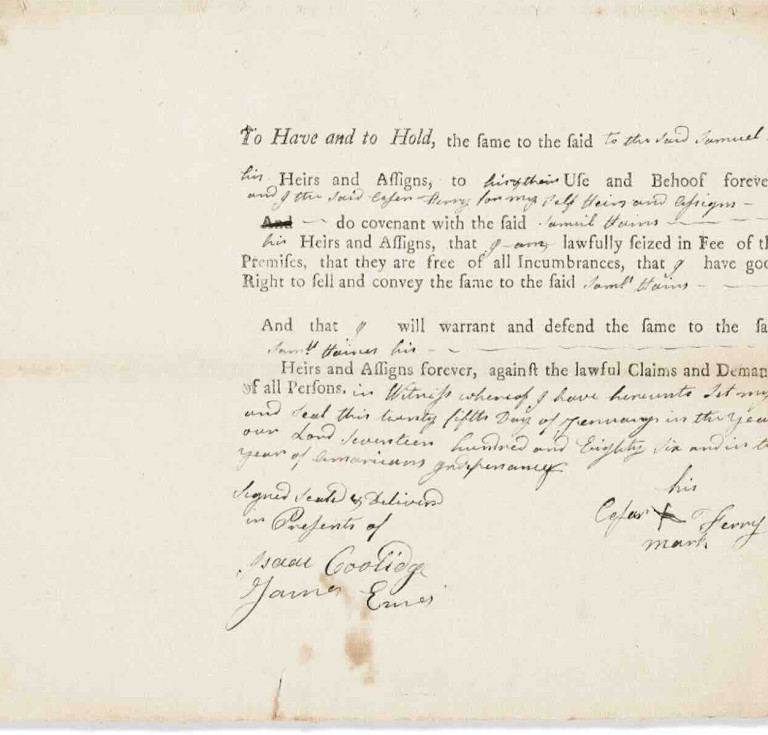 To Have and to Hold, the ſame to the ſaid to the said Samuel
his Heirs and Aſſigns, to his & their Uſe and Behoof foreve
and I the said Cesar Ferry for my self Heirs and assigns –
And – do covenant with the ſaid Samuel Hains
his Heirs and Aſſigns, that I am lawfully ſeized in Fee of th
Premiſes, that they are free of all Incumbrances, that I have goo
Right to ſell and convey the ſame to the ſaid Samll Hains –
And that I will warrant and defend the ſame to the ſa
Samll Haines his –
Heirs and Aſſigns forever, againſt the lawful Claims and Deman
of all Perſons. in Witneſs whereof I have hereunto Set my
and Seal this twenty fifth Day of Jenuary in the Yea
our Lord Seventeen hundred and Eighty Six and in t
year of Americans Independancy
Signed Seald & Deliverd
in Presents of
his
Cesar Ferry
mark
Isaac Coolidge
James Emes